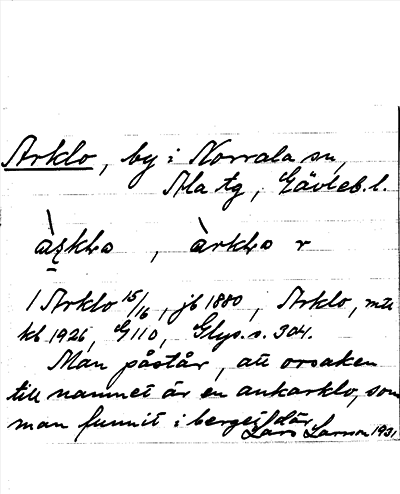 Arklo, by i Norrala sn,
Ala tg, Gävleb. l.
àṣkLo, àrkLo r
1 Arklo 15/16, jb 1880, Arklo, mtr
kb 1926, G 110, Glys. s. 304.
Man påstår, att orsaken
till namnet är en ankarklo, som
man funnit i berget där
Lars Larsson 1931